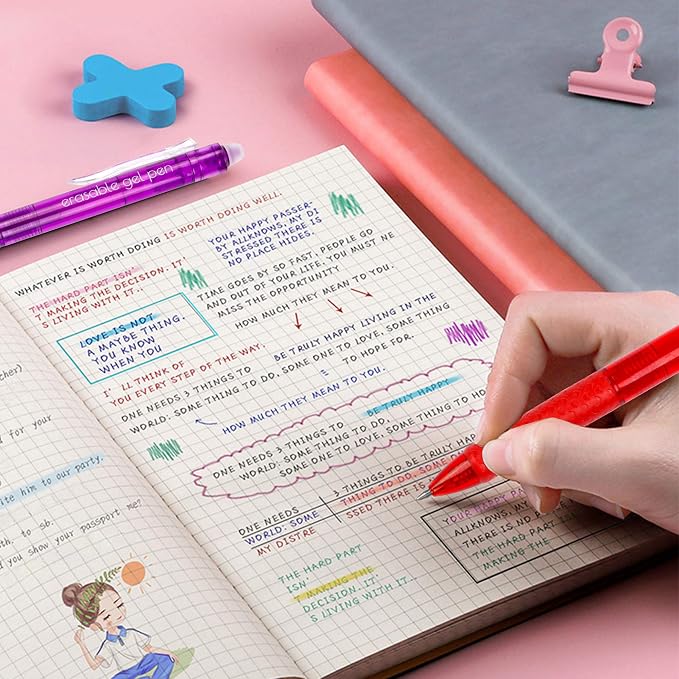 erasable gel pen
WHATEVER IS WORTH DOING IS WORTH DOING WELL.
THE HARD PART ISN'
T MAKING THE DECISION. IT'
S LIVING WITH IT..
YOUR HAPPY PASSER-
BY ALLKNOWS, MY DI
STRESSED THERE IS
NO PLACE HIDES.
TIME GOES BY SO FAST, PEOPLE GO
AND OUT OF YOUR LIFE. YOU MUST NE
MISS THE OPPORTUNITY
HOW MUCH THEY MEAN TO YOU.
LOVE IS NOT
A MAYBE THING.
YOU KNOW
WHEN YOU
I' LL THINK OF
YOU EVERY STEP OF THE WAY.
BE TRULY HAPPY LIVING IN THE
ONE NEEDS 3 THINGS TO
WORLD: SOME THING TO DO, SOME ONE TO LOVE, SOME THING
= TO HOPE FOR.
HOW MUCH THEY MEAN TO YOU.
BE TRULY HAPPY
ONE NEEDS 3 THINGS TO
WORLD: SOME THING TO DO,
SOME ONE TO LOVE, SOME THING TO HO
ONE NEEDS 3 THINGS TO BE TRULY HAPPY
WORLD: SOME THING TO DO, SOME ON
MY DISTRE SSED THERE IS
YOUR HAPPY PA
ALLKNOWS, MY
THERE IS NO P
THE HARD PART
MAKING THE
THE HARD PART
ISN'
T MAKING THE
DECISION. IT'
S LIVING WITH IT..
cher)
d for your
ite him to our party.
th, to sb.
d you show your passport me?